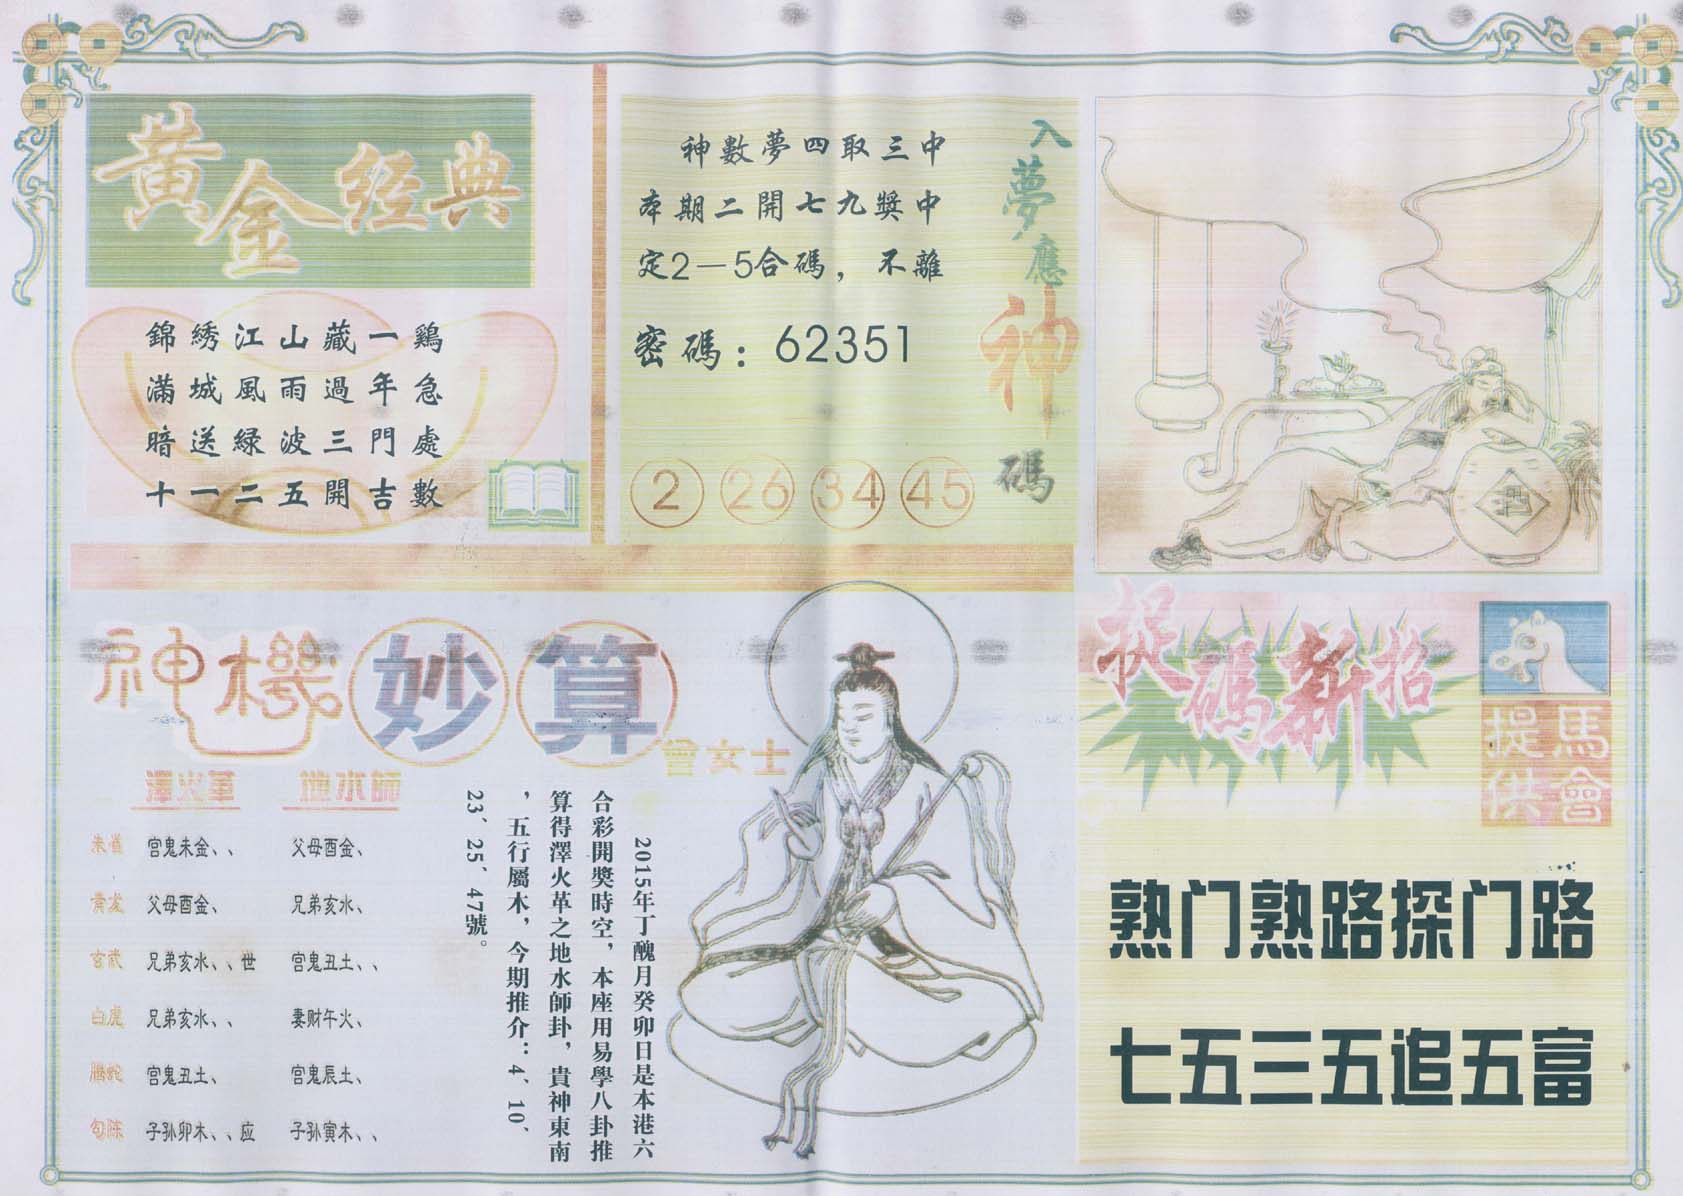 黄金经典
錦綉江山藏一鷄
滿城風雨過年急
暗送緑波三門處
十一二五開吉數
神數夢四取三中
本期二開七九獎中
定2－5合碼，不離
密碼：62351
2 26 34 45
入夢應神碼
神機妙算
曾女士
澤火革 地水師
朱雀 宫鬼未金、、 父母酉金、
黄龙 父母酉金、 兄弟亥水、
玄武 兄弟亥水、、世 宫鬼丑土、、
白虎 兄弟亥水、、 妻财午火、
腾蛇 宫鬼丑土、 宫鬼辰土、
勾陈 子孙卯木、、应 子孙寅木、、
2015年丁醜月癸卯日是本港六
合彩開獎時空，本座用易學八卦推
算得澤火革之地水師卦，貴神東南
，五行屬木，今期推介：4、10、
23、25、47號。
捉碼新招
馬會
提供
熟门熟路探门路
七五三五追五富